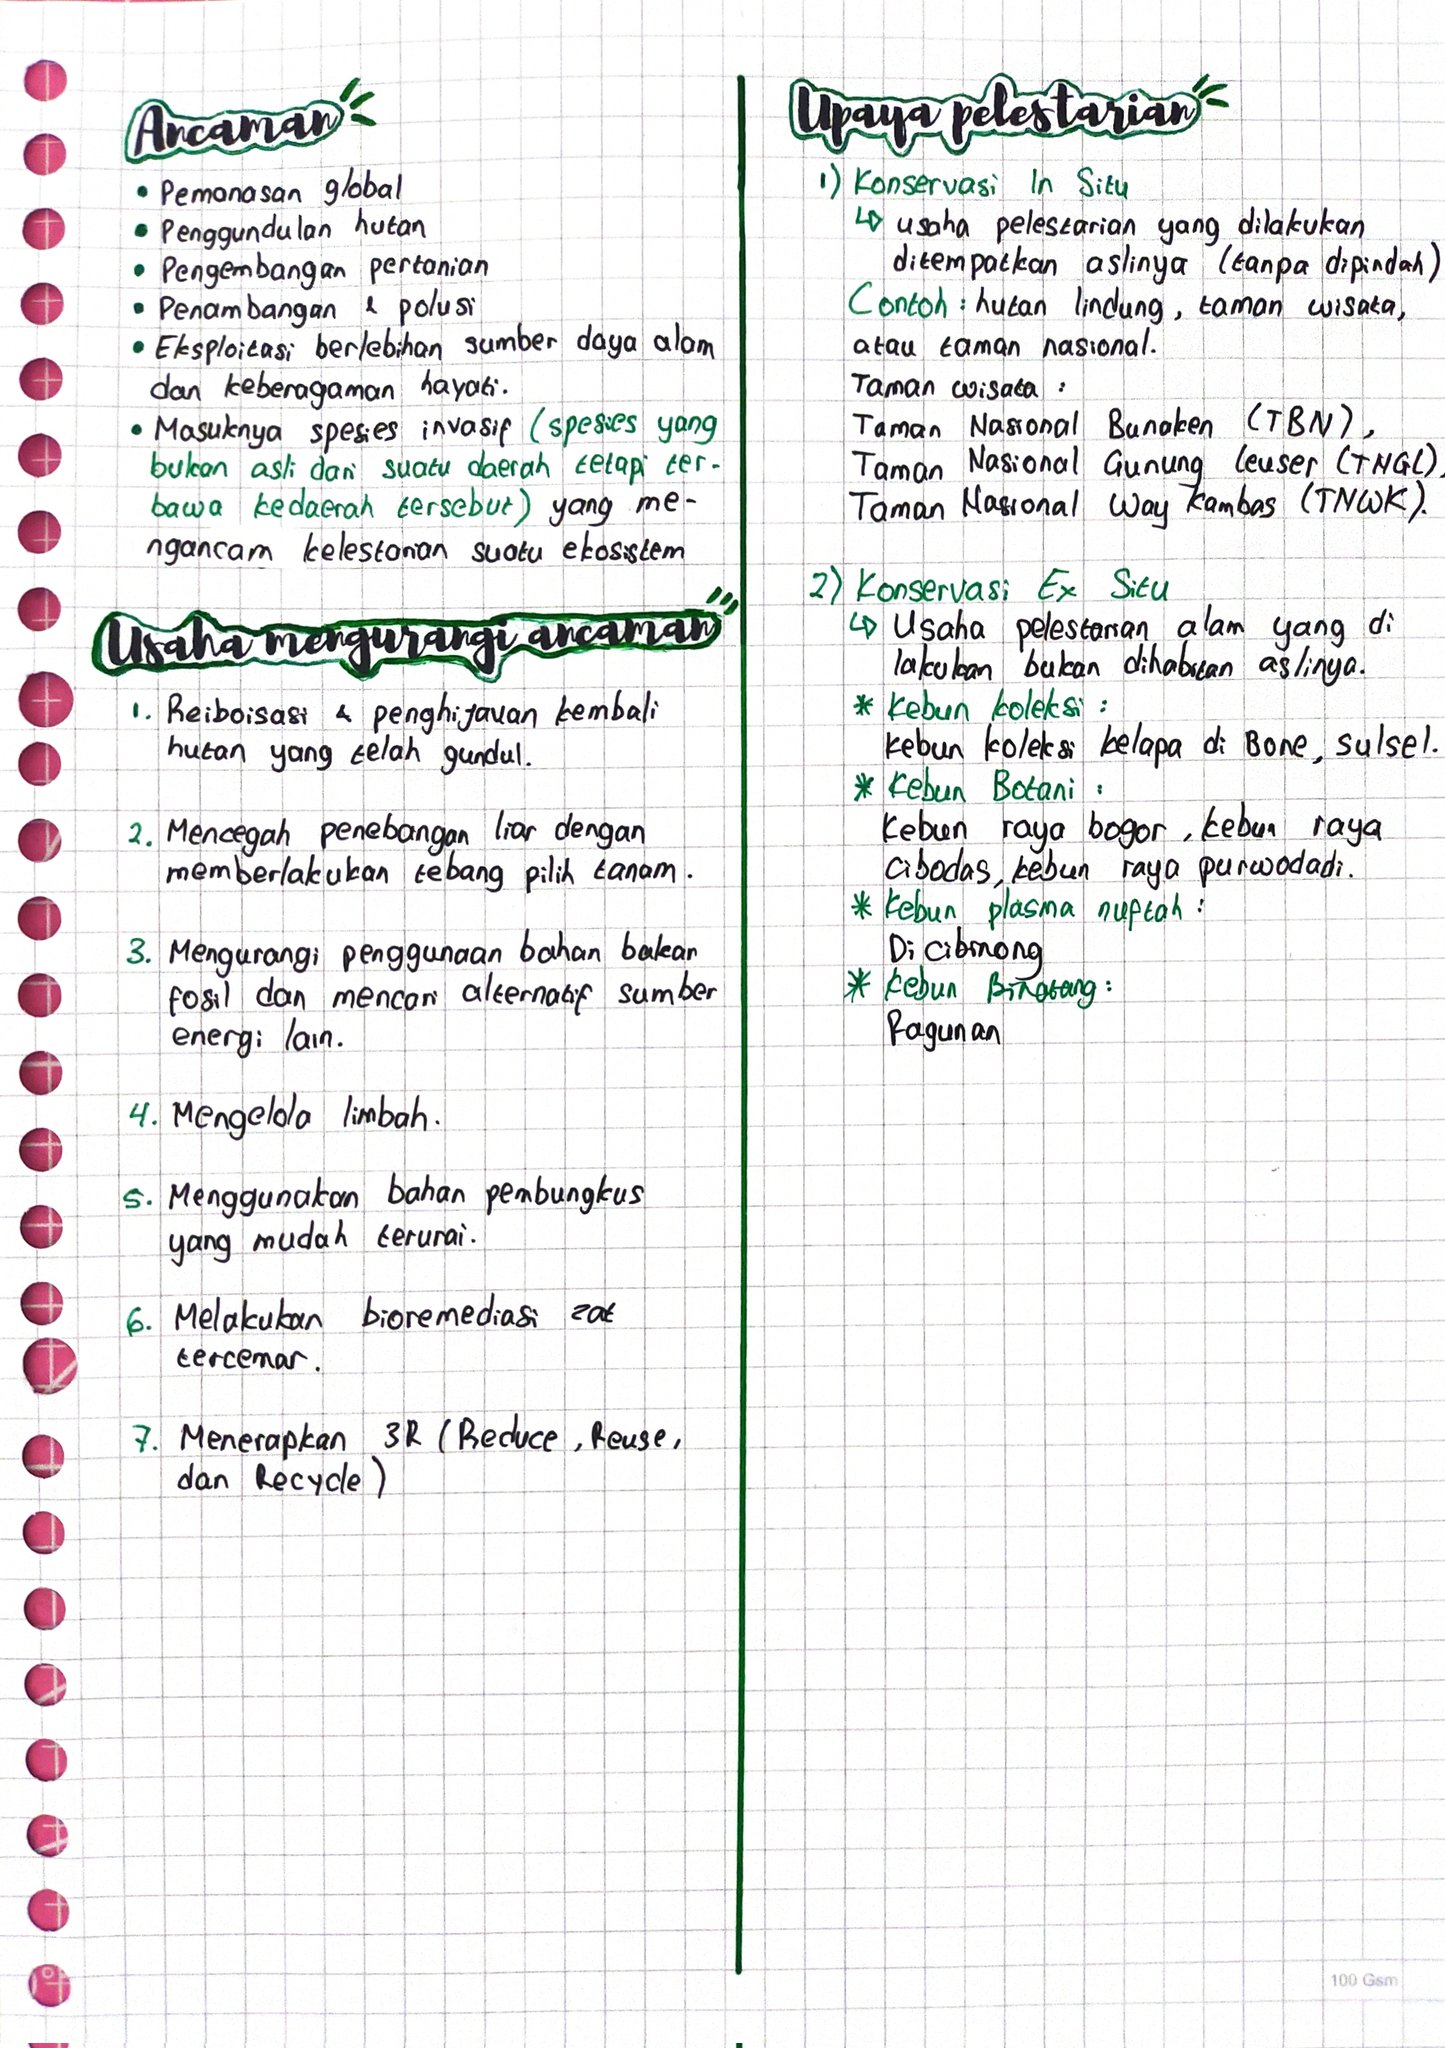 Ancaman
• Pemanasan global
• Penggundulan hutan
• Pengembangan pertanian
• Penambangan & polusi
• Eksploitasi berlebihan sumber daya alam
dan keberagaman hayati.
• Masuknya spesies invasif (spesies yang
bukan asli dari suatu daerah tetapi ter-
bawa kedaerah tersebut) yang me-
ngancam kelestarian suatu ekosistem
Usaha mengurangi ancaman
1. Reiboisasi & penghijauan kembali
hutan yang telah gundul.
2. Mencegah penebangan liar dengan
memberlakukan tebang pilih tanam.
3. Mengurangi penggunaan bahan bakar
fosil dan mencari alternatif sumber
energi lain.
4. Mengelola limbah.
5. Menggunakan bahan pembungkus
yang mudah terurai.
6. Melakukan bioremediasi zat
tercemar.
7. Menerapkan 3R (Reduce, Reuse,
dan Recycle)
Upaya pelestarian
1) Konservasi In Situ
↳ usaha pelestarian yang dilakukan
ditempatkan aslinya (tanpa dipindah)
Contoh : hutan lindung, taman wisata,
atau taman nasional.
Taman wisata :
Taman Nasional Bunaken (TBN),
Taman Nasional Gunung Leuser (TNGL),
Taman Nasional Way Kambas (TNWK).
2) Konservasi Ex Situ
↳ Usaha pelestarian alam yang di
lakukan bukan dihabitan aslinya.
* Kebun koleksi :
Kebun koleksi kelapa di Bone, Sulsel.
* Kebun Botani :
Kebun raya bogor, kebun raya
cibodas, kebun raya purwodadi.
* Kebun plasma nuftah :
Di cibinong
* Kebun Binatang :
Ragunan
100 Gsm